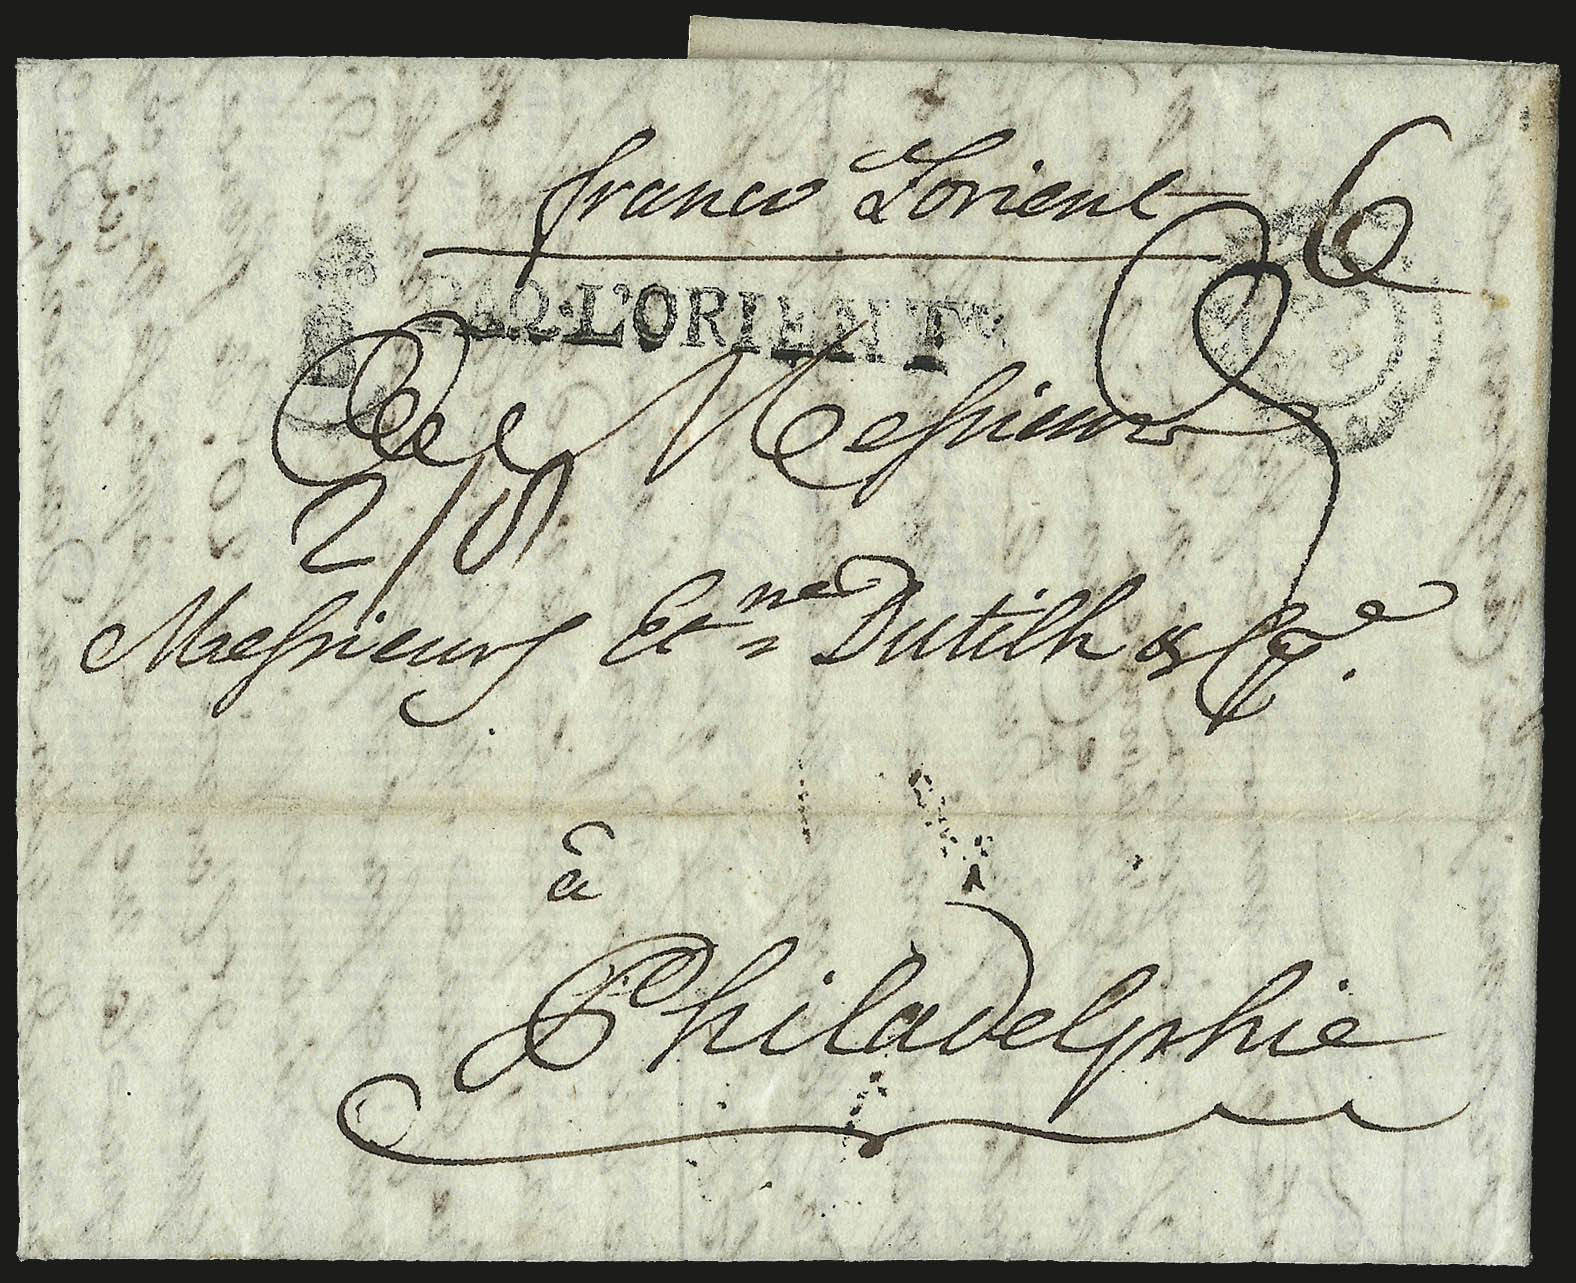 franco Lorient
6
B
PAQ.L'ORIENT
Messieurs
2/
Messieurs Et.ne Dutilh & Cie.
à
Philadelphie